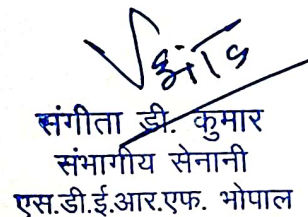 संगीता डी. कुमार
संभागीय सेनानी
एस.डी.ई.आर.एफ. भोपाल